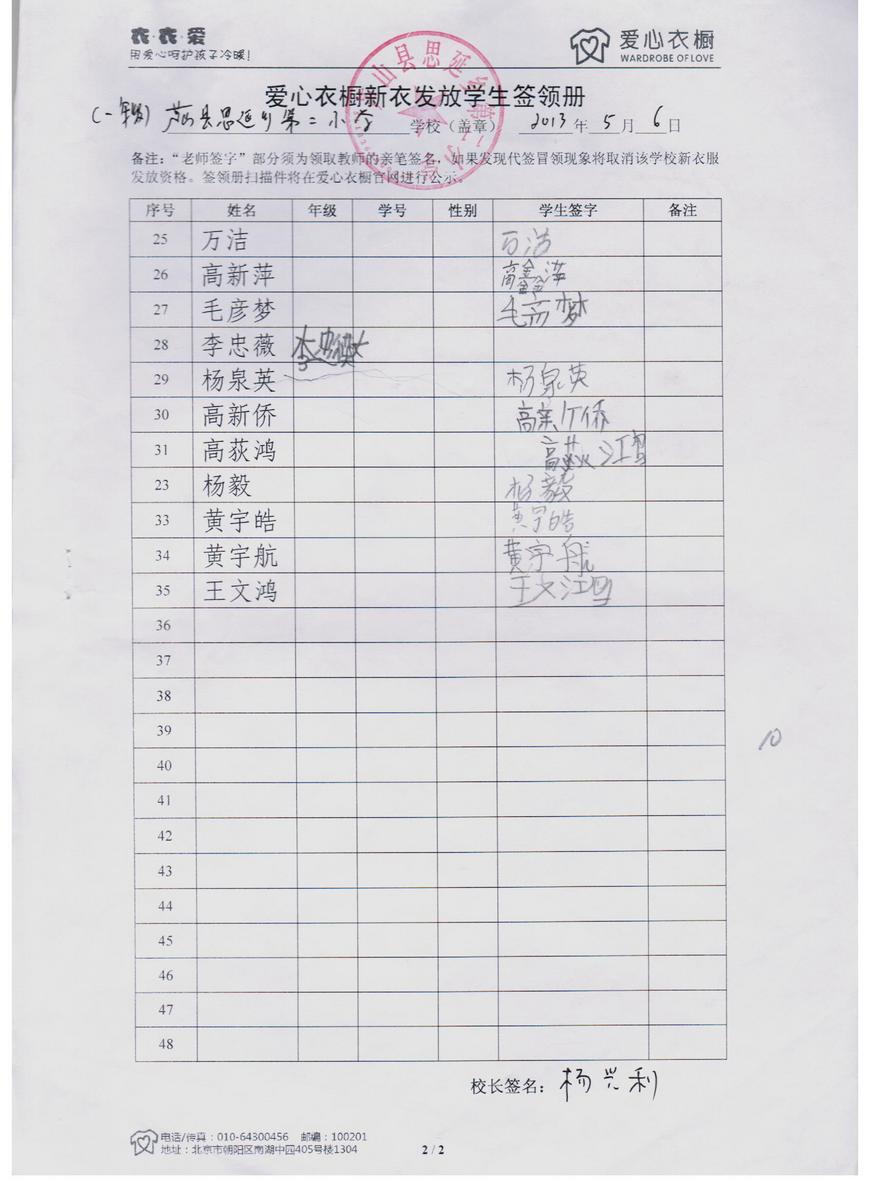 衣·衣·爱
用爱心呵护孩子冷暖!
爱心衣橱
WARDROBE OF LOVE
爱心衣橱新衣发放学生签领册
(一年级) 芦山县思延乡第二小学 学校(盖章) 2013年5月6日
备注:“老师签字”部分须为领取教师的亲笔签名,如果发现代签冒领现象将取消该学校新衣服
发放资格。签领册扫描件将在爱心衣橱官网进行公示。
序号 姓名 年级 学号 性别 学生签字 备注
25 万洁 万洁
26 高新萍 高鑫萍
27 毛彦梦 毛彦梦
28 李忠薇 李忠薇
29 杨泉英 杨泉英
30 高新侨 高新侨
31 高荻鸿 高荻鸿
23 杨毅 杨毅
33 黄宇皓 黄宇皓
34 黄宇航 黄宇航
35 王文鸿 王文鸿
36
37
38
39
40
41
42
43
44
45
46
47
48
10
校长签名: 杨兴利
电话/传真:010-64300456 邮编:100201
地址:北京市朝阳区南湖中园405号楼1304
2 / 2